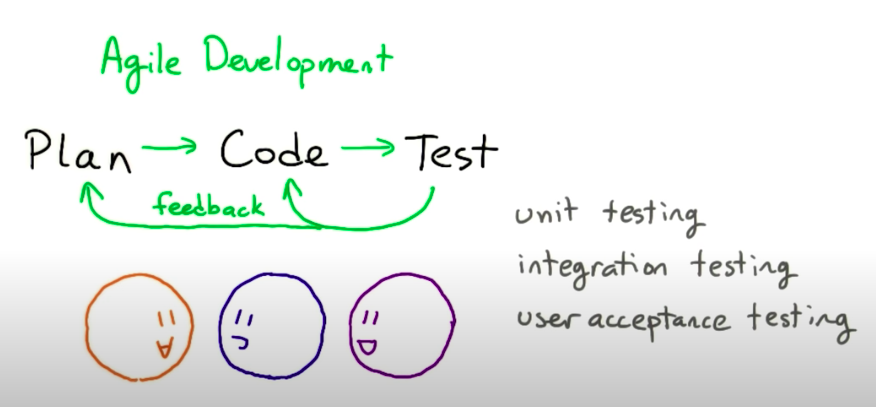 Agile Development
Plan → Code → Test
feedback
unit testing
integration testing
user acceptance testing